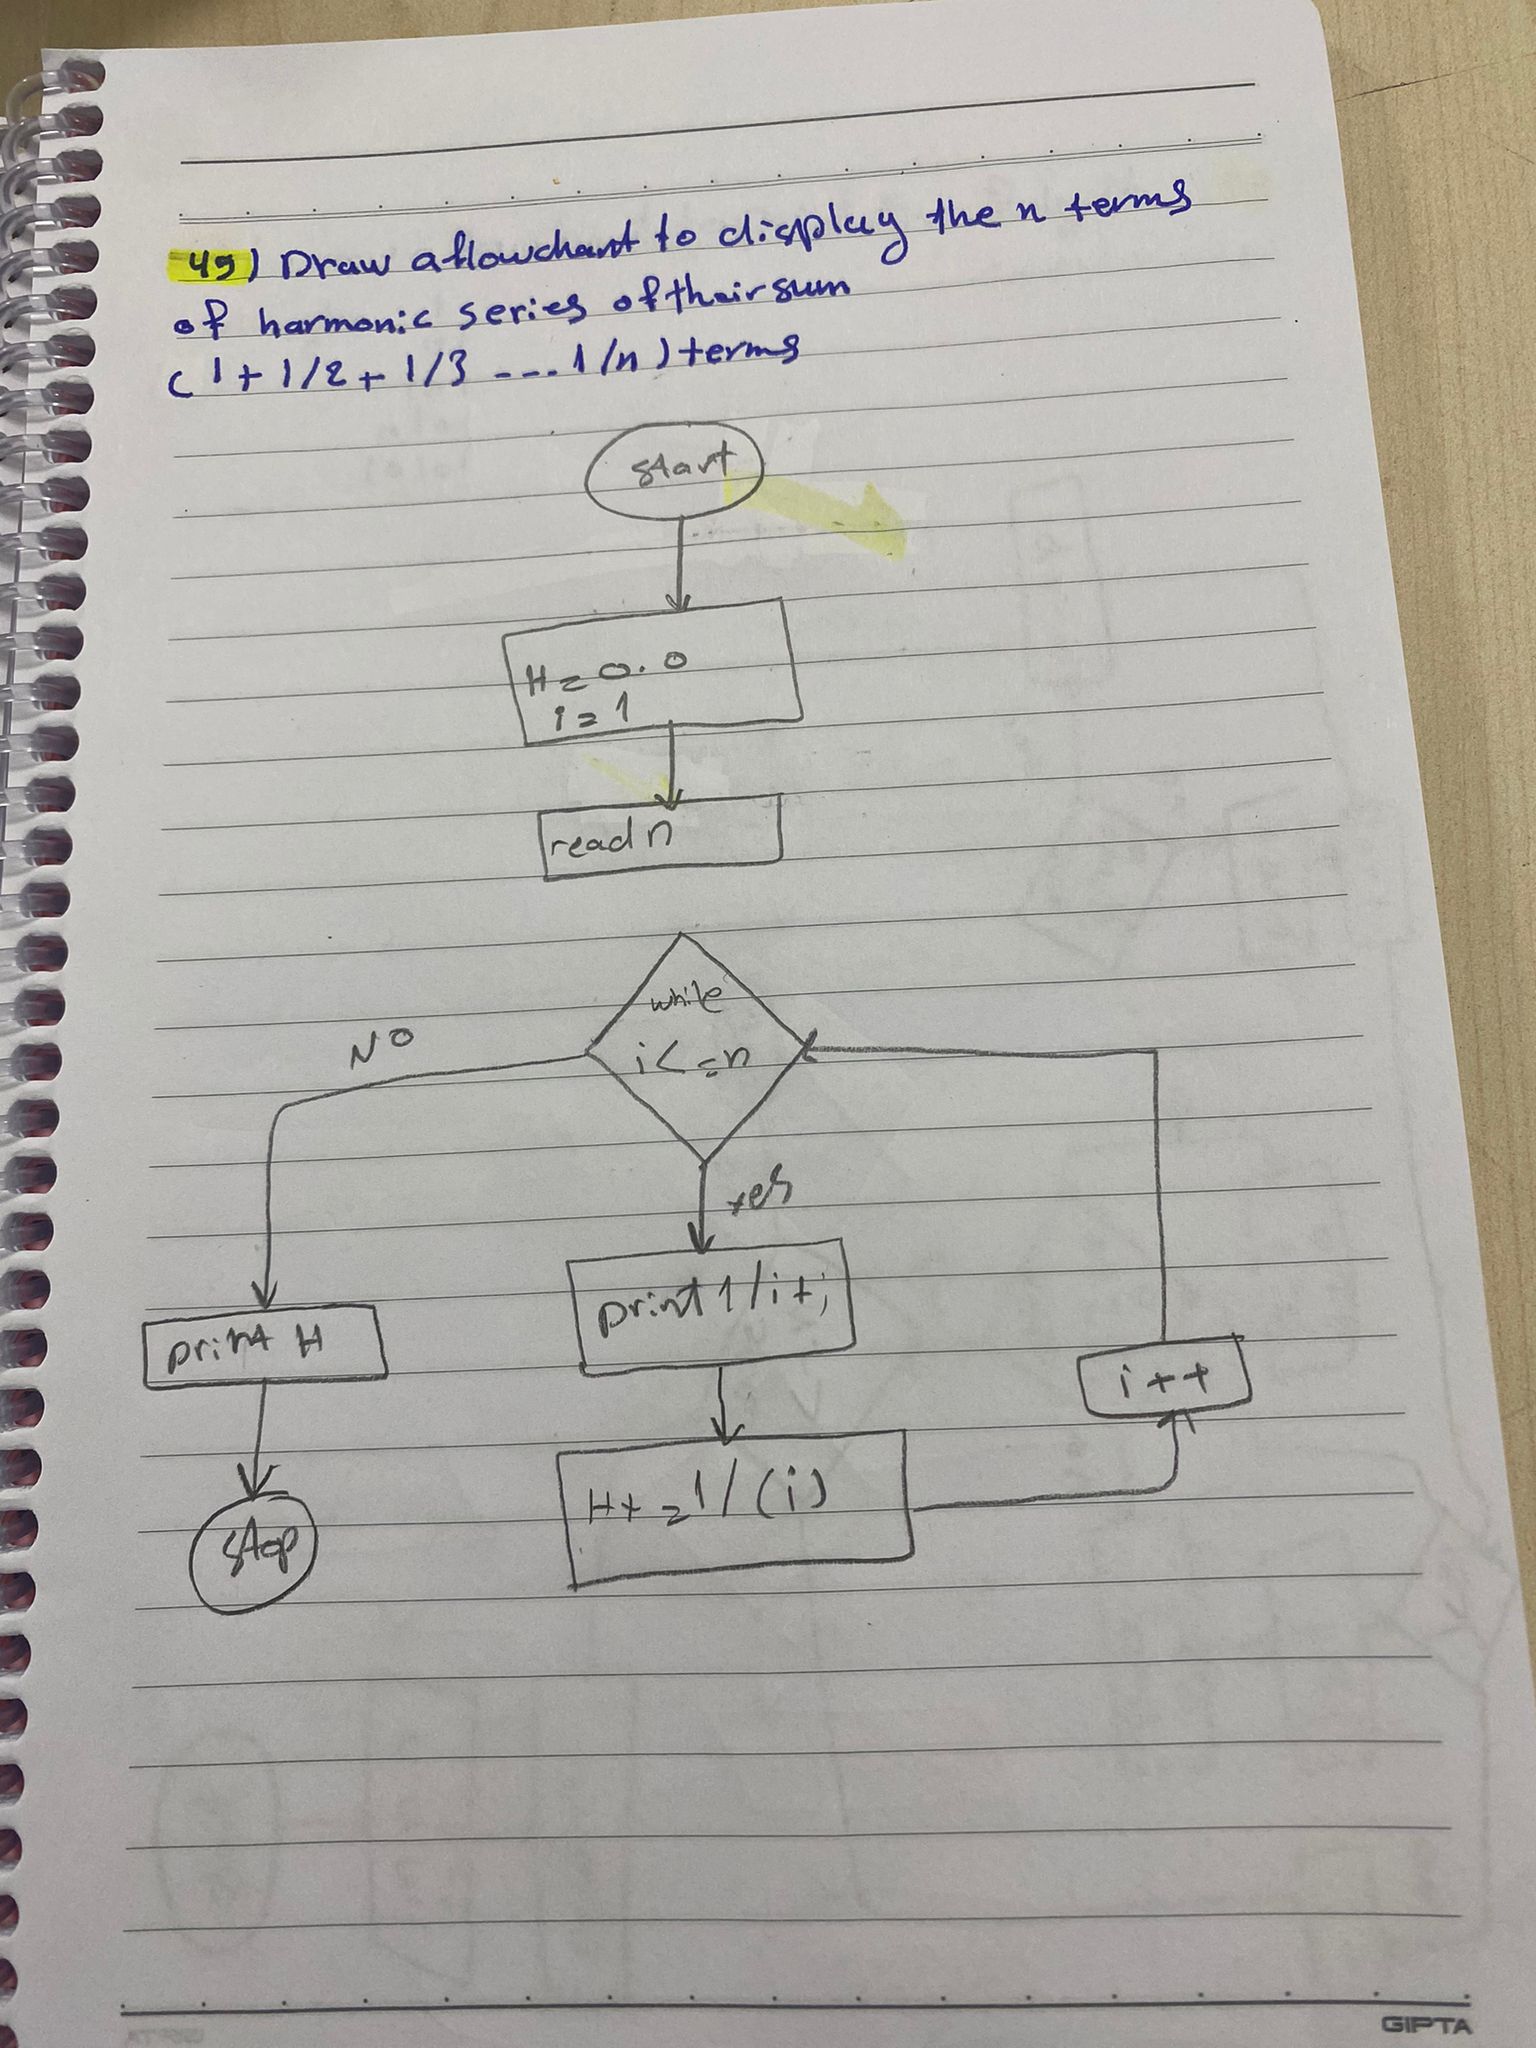 49) Draw a flowchart to display the n terms
of harmonic series of their sum
(1+1/2+1/3 ---. 1/n) terms
start
H=0.0
i=1
read n
while
i<=n
NO
yes
print 1/i+;
print H
i++
H+=1/(i)
stop
GIPTA